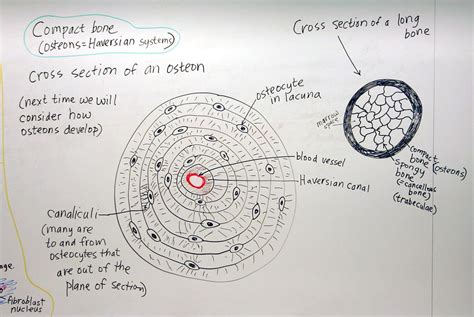 Compact bone
(osteons=Haversian systems)
Cross section of an osteon
(next time we will
consider how
osteons develop)
osteocyte
in lacuna
blood vessel
Haversian canal
canaliculi
(many are
to and from
osteocytes that
are out of the
plane of section)
Cross section of a long
bone
marrow
space
compact
bone (osteons)
spongy
bone
(=cancellous
bone)
(trabeculae)
fibroblast
nucleus